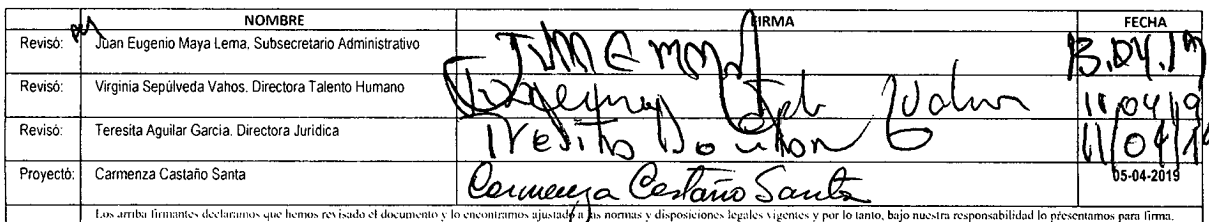 NOMBRE FIRMA FECHA
Revisó: Juan Eugenio Maya Lema. Subsecretario Administrativo
Revisó: Virginia Sepúlveda Vahos. Directora Talento Humano
Revisó: Teresita Aguilar García. Directora Jurídica 11/04/19
Proyectó: Carmenza Castaño Santa Carmenza Castaño Santa 05-04-2019
Los arriba firmantes declaramos que hemos revisado el documento y lo encontramos ajustado a las normas y disposiciones legales vigentes y por lo tanto, bajo nuestra responsabilidad lo presentamos para firma.